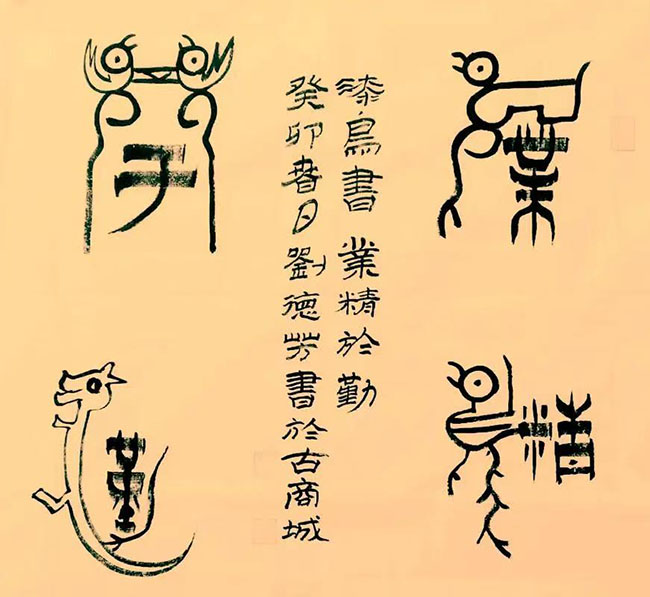 業
精
漆鳥書 業精於勤
癸卯春日劉德芳書於古商城
于
勤